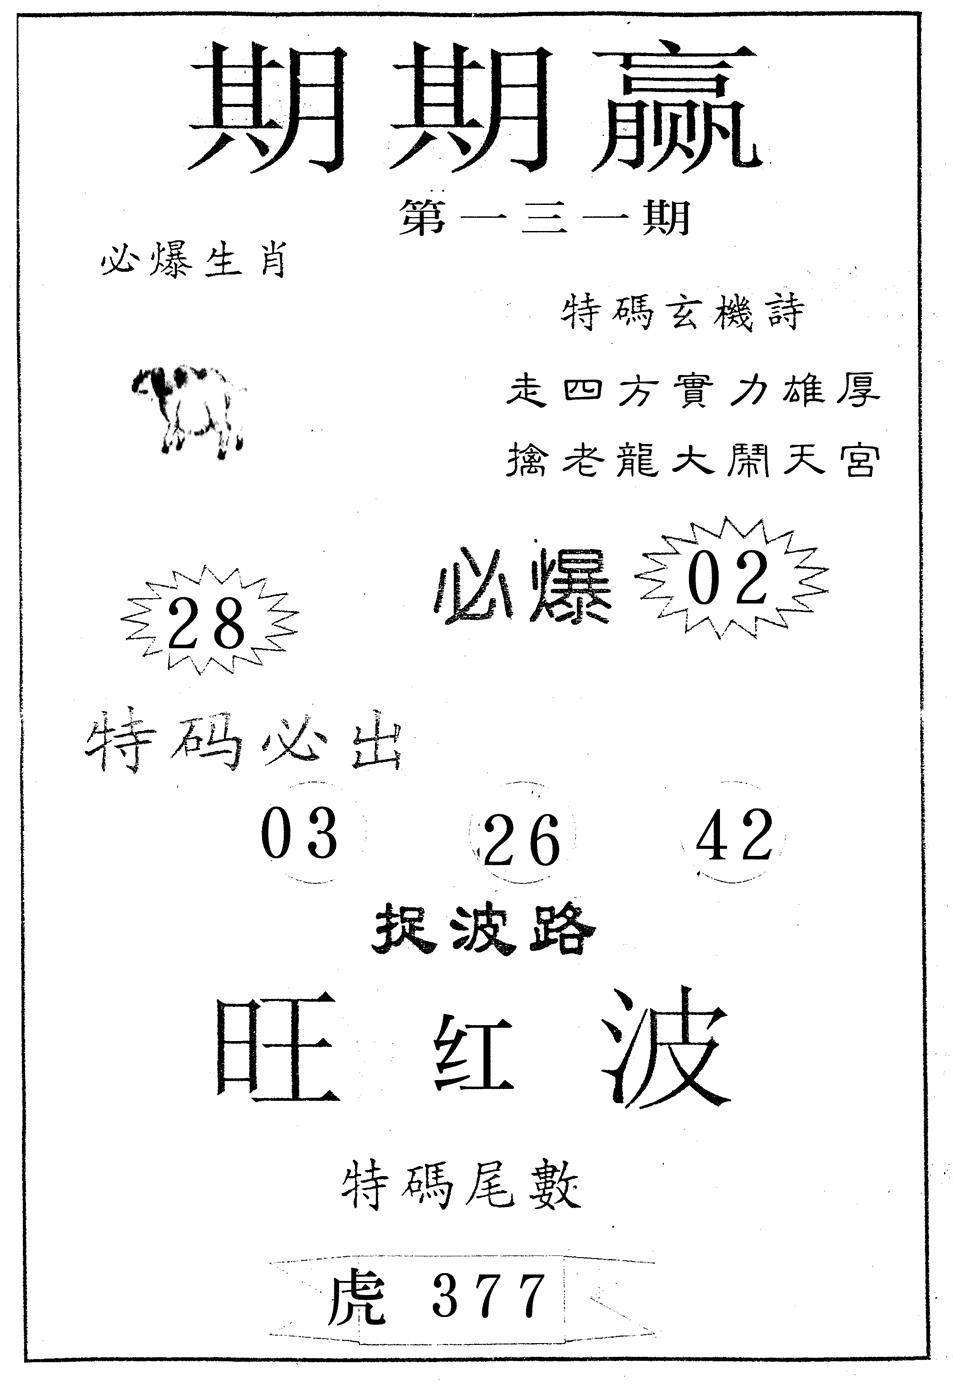 期期赢
第一三一期
必爆生肖
特碼玄機詩
走四方實力雄厚
擒老龍大鬧天宮
必爆 02
28
特码必出
03 26 42
捉波路
旺红波
特碼尾數
虎 377